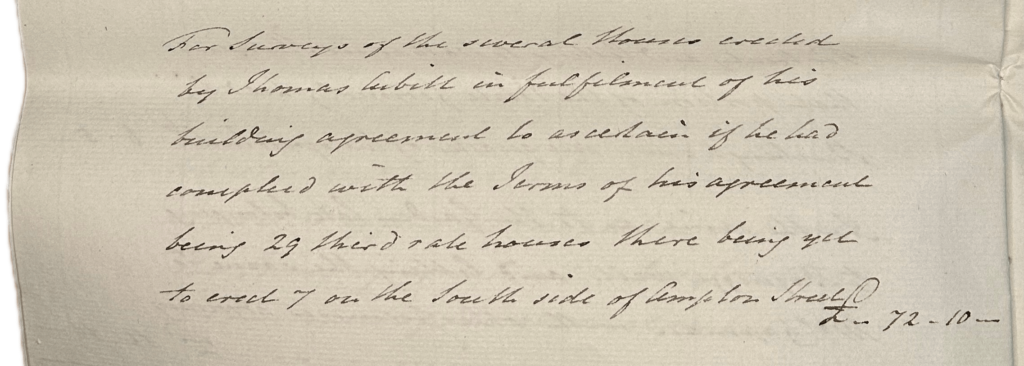 For Surveys of the several Houses erected
by Thomas Cubitt in fulfilment of his
building agreement to ascertain if he had
complied with the Terms of his agreement
being 29 third rate houses there being yet
to erect 7 on the South side of Ampton Street
£ 72-10-